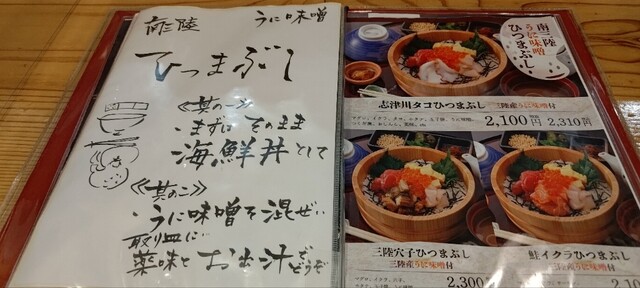 南三陸 うに味噌
ひつまぶし
≪其の一≫
・まずは そのまま
海鮮丼として
≪其の二≫
・うに味噌を混ぜ
取り皿に
薬味と お出汁で
どうぞ
南三陸
うに味噌
ひつまぶし
志津川タコひつまぶし 三陸産うに味噌付
2,100円 2,310円
三陸穴子ひつまぶし
三陸産うに味噌付
2,300
鮭イクラひつまぶし
三陸産うに味噌付